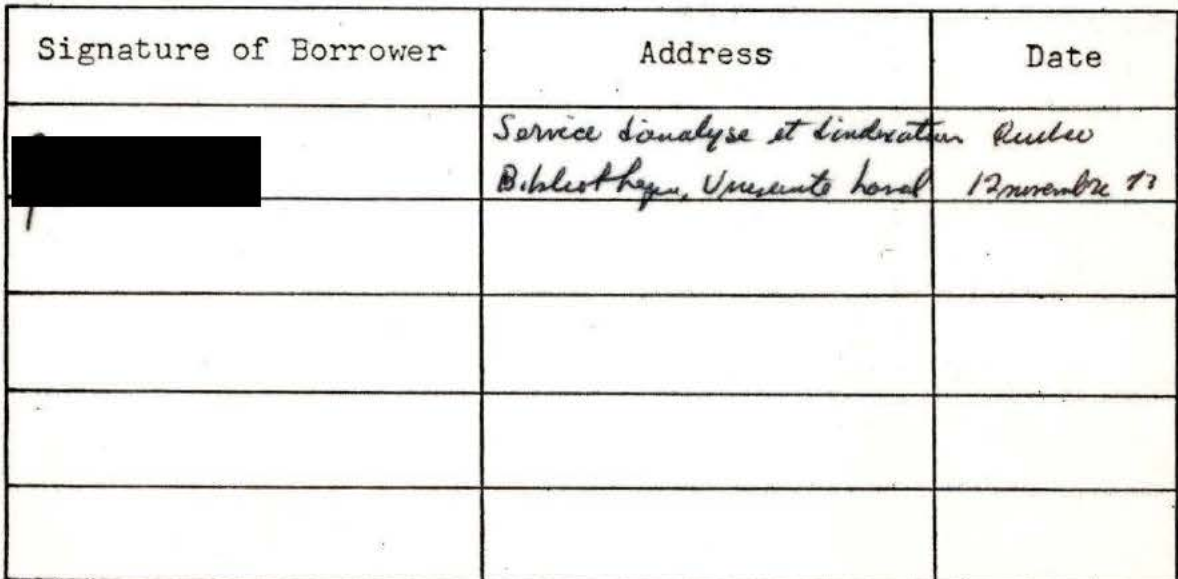 Signature of Borrower Address Date
Service d'analyse et d'indexation Québec
Bibliothèque, Université Laval 12 novembre